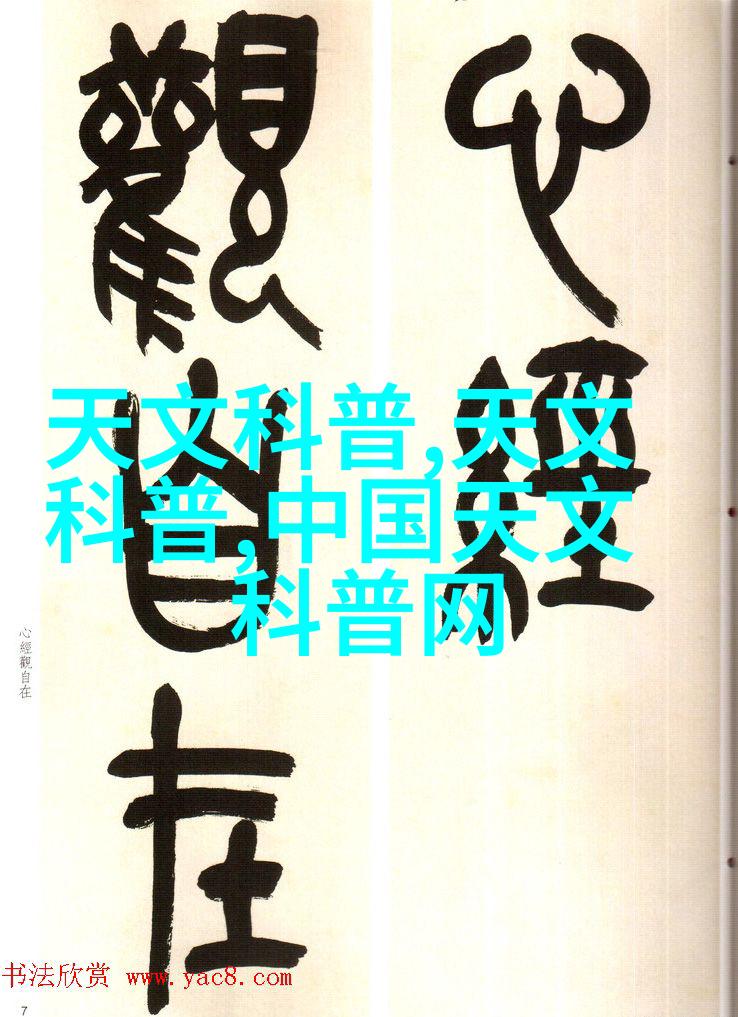 心經
觀自在
天文科普,天文
科普,中国天文
科普网
心經觀自在
书法欣赏 www.yac8.com
7